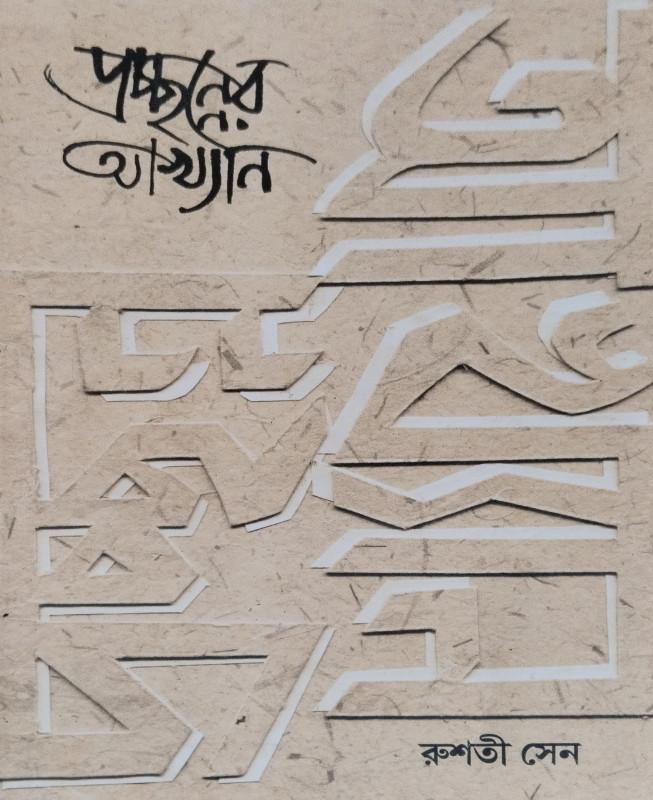 প্রচ্ছন্নের
আখ্যান
রুশতী সেন